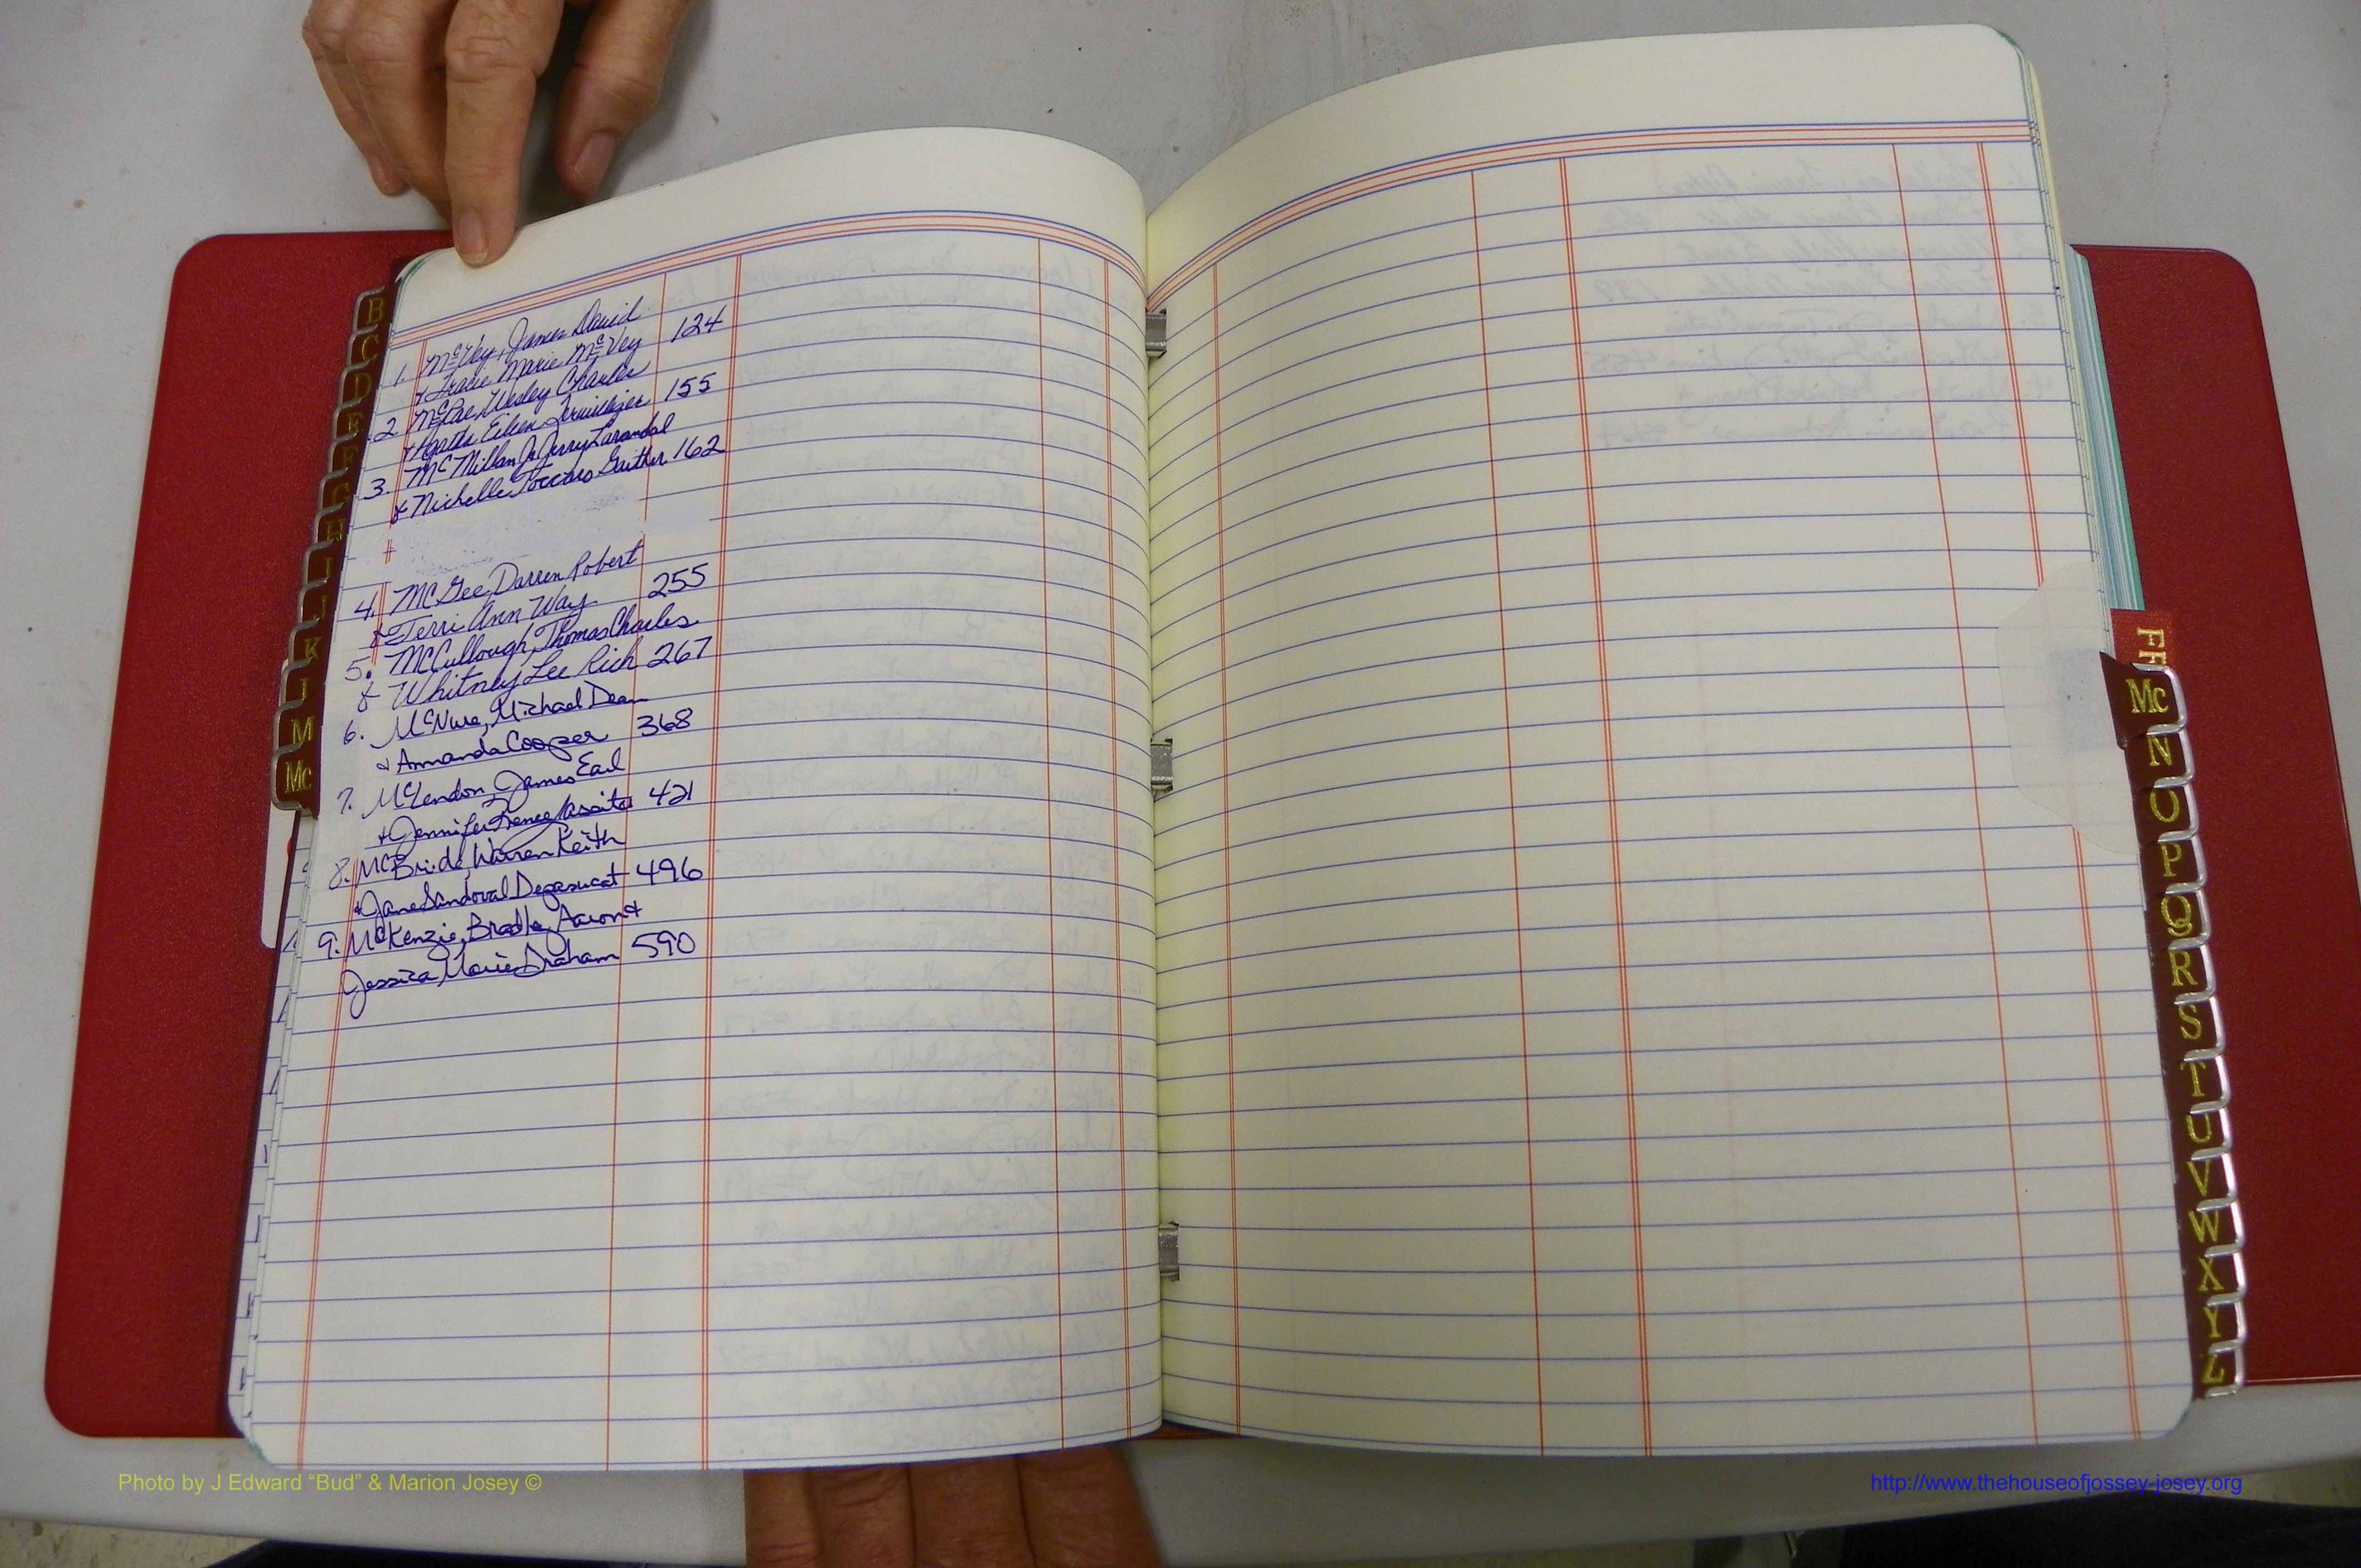 1. McVey, James David
& Tracie Marie McVey 124
2. McRae, Wesley Charles
& Agatha Eileen Terwilliger 155
3. McMillan Jr, Jerry Larandal
& Nichelle Gaither 162
4. McGee, Darren Robert
& Terri Ann Way 255
5. McCullough, Thomas Charles
& Whitney Lee Rich 267
6. Michael Dean
& Amanda Cooper 368
7. McLendon, James Earl
& Jennifer Renee 421
8. McBride, Warren Keith
& Jane Sandoval 496
9. McKenzie, Bradley Aaron &
Jessica Marie Graham 590
B
C
D
E
F
G
H
I
J
K
L
M
Mc
Mc
N
O
P
Q
R
S
T
U
V
W
X
Y
Z
Photo by J Edward “Bud” & Marion Josey ©
http://www.thehouseofjossey-josey.org